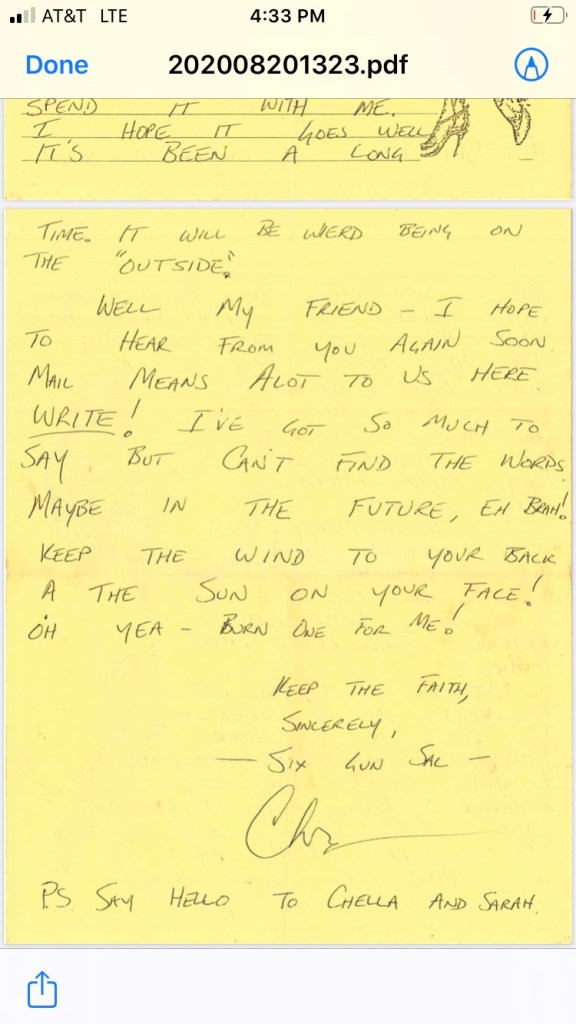 AT&T LTE 4:33 PM
Done 202008201323.pdf
SPEND IT WITH ME.
I HOPE IT GOES WELL
IT'S BEEN A LONG
TIME. IT WILL BE WIERD BEING ON
THE "OUTSIDE".
WELL MY FRIEND – I HOPE
TO HEAR FROM YOU AGAIN SOON.
MAIL MEANS ALOT TO US HERE.
WRITE! I'VE GOT SO MUCH TO
SAY BUT CAN'T FIND THE WORDS.
MAYBE IN THE FUTURE, EH BRAH!
KEEP THE WIND TO YOUR BACK
A THE SUN ON YOUR FACE!
OH YEA – BURN ONE FOR ME!
KEEP THE FAITH,
SINCERELY,
— SIX GUN SAL —
P.S. SAY HELLO TO CHELLA AND SARAH.